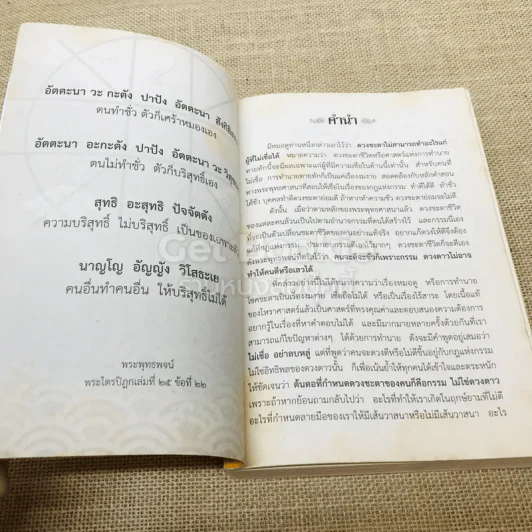 อัตตะนา วะ กะตัง ปาปัง อัตตะนา
ตนทำชั่ว ตัวก็เศร้าหมองเอง
อัตตะนา อะกะตัง ปาปัง อัตตะนา วะ
ตนไม่ทำชั่ว ตัวก็บริสุทธิ์เอง
สุทธิ อะสุทธิ ปัจจัตตัง
ความบริสุทธิ์ ไม่บริสุทธิ์ เป็นของเฉพาะตัว
นาญโญ อัญญัง วิโสธะเย
คนอื่นทำคนอื่น ให้บริสุทธิ์ไม่ได้
พระพุทธพจน์
พระไตรปิฎกเล่มที่ ๒๕ ข้อที่ ๒๒
คำนำ
มีหมอดูท่านหนึ่งกล่าวเอาไว้ว่า ดวงชะตาไม่สามารถทำอะไรแก่
ผู้ที่ไม่เชื่อได้ หมายความว่า ดวงชะตาชีวิตหรือศาสตร์แห่งการทำนาย
ทายทักนี้จะมีผลเฉพาะแก่ผู้ที่มีความเชื่อในด้านนี้เท่านั้น สำหรับคนที่
ไม่เชื่อ การทำนายทายทักก็เป็นแค่เรื่องงมงาย สอดคล้องกับหลักคำสอน
ทางพระพุทธศาสนาที่สอนให้เชื่อในเรื่องของกฎแห่งกรรม ทำดีได้ดี ทำชั่ว
ได้ชั่ว บุคคลทำดีดวงชะตาย่อมดี ถ้าหากทำความชั่ว ดวงชะตาย่อมไม่ดี
ดังนั้น เมื่อว่าตามหลักของพระพุทธศาสนาแล้ว ดวงชะตาชีวิต
ของแต่ละคนล้วนเป็นไปตามอำนาจกรรมที่ตนได้สร้างไว้ และกรรมนี้เอง
ที่จะเป็นตัวเปลี่ยนชะตาชีวิตของคนอย่างแท้จริง อยากให้ดวงดีจึงต้อง
แก้ที่กฎแห่งกรรม ประกอบกรรมดีเอาไว้มากๆ ดวงชะตาชีวิตก็จะดีเอง
ดังพระพุทธพจน์ที่ตรัสไว้ว่า คนจะดีจะชั่วก็เพราะกรรม ดวงดาวไม่อาจ
ทำให้คนดีหรือเลวได้
ที่กล่าวอย่างนี้ไม่ได้หมายความว่าเรื่องหมอดู หรือการทำนาย
โชคชะตาเป็นเรื่องงมงาย เชื่อถือไม่ได้ หรือเป็นเรื่องไร้สาระ โดยเนื้อแท้
ของโหราศาสตร์แล้วเป็นศาสตร์ที่ทรงคุณค่าและตอบสนองความต้องการ
อยากรู้ในเรื่องที่หาคำตอบไม่ได้ และมีมากมายหลายครั้งด้วยกันที่เรา
สามารถแก้ไขปัญหาต่างๆ ได้ด้วยการทำนาย ดังจะมีคำพูดอยู่เสมอว่า
ไม่เชื่อ อย่าลบหลู่ แต่ที่พูดว่าคนจะดวงดีหรือไม่ดีขึ้นอยู่กับกฎแห่งกรรม
ไม่ใช่อิทธิพลของดวงดาวนั้น ก็เพื่อเน้นย้ำให้ทุกคนได้เข้าใจและตระหนัก
ให้ชัดเจนว่า ต้นตอที่กำหนดดวงชะตาของคนก็คือกรรม ไม่ใช่ดวงดาว
เพราะถ้าหากย้อนถามกลับไปว่า อะไรที่ทำให้เราเกิดในฤกษ์ยามที่ไม่ดี
อะไรที่กำหนดลายมือของเราให้มีเส้นวาสนาหรือไม่มีเส้นวาสนา อะไร